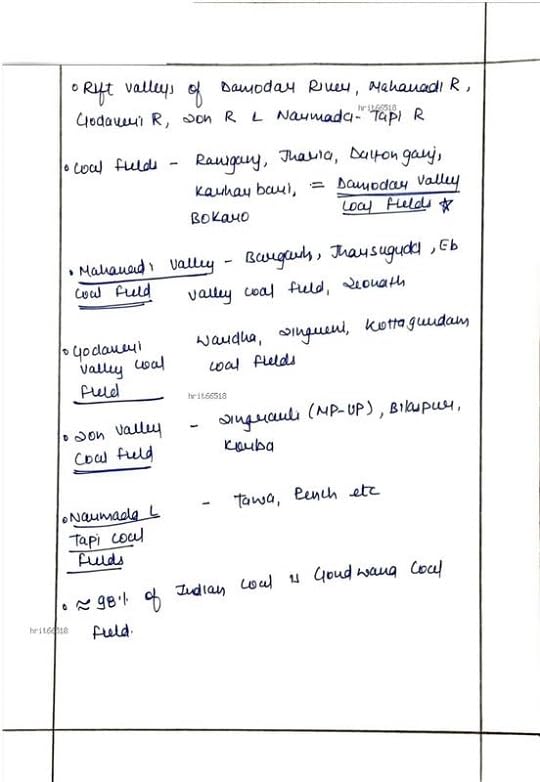 • Rift Valleys of Damodar River, Mahanadi R,
hrit66518
Godaveri R, Son R & Narmada- Tapi R
• Coal fields - Raniganj, Jharia, Daltonganj,
Karharbari, = Damodar Valley
Bokaro Coal Fields ☆
• Mahanadi Valley - Bargarh, Jharsuguda, Eb
Coal Field valley coal field, Seonath
• Godaveri Wardha, Singreni, Kottagundam
Valley Coal coal fields
Field
hrit66518
• Son Valley - Singrauli (MP-UP), Bisrampur,
Coal Field Korba
• Narmada & - Tawa, Pench etc
Tapi Coal
Fields
• ≈ 98% of Indian Coal is Gondwana Coal
hrit66518 Field.